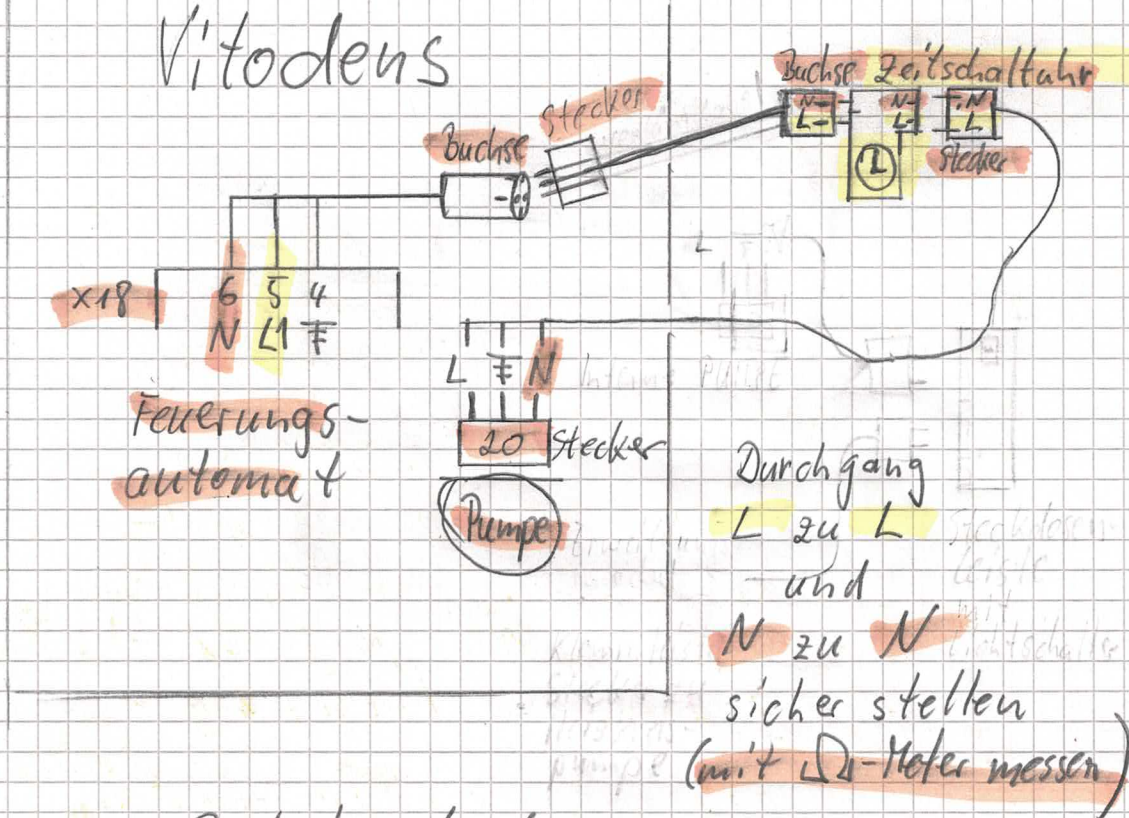 Vitodens
Buchse Zeitschaltuhr
N N N
L L L
Stecker
Stecker
Buchse
X18
6 5 4
N L1
L N
Feuerungs-
automat
20 Stecker
Pumpe
Durchgang
L zu L
und
N zu N
sicher stellen
(mit Ω-Meter messen)